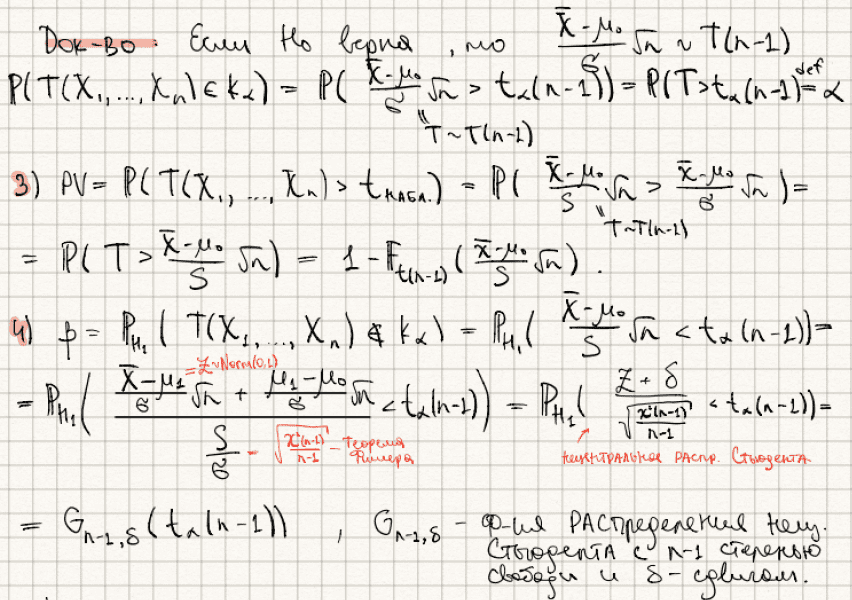 Док-во. Если H₀ верна, то (X̄-μ₀)/σ √n ~ T(n-1)
P(T(X₁,...,Xₙ) ∈ K_α) = P((X̄-μ₀)/σ √n > t_α(n-1)) = P(T>t_α(n-1)) =^def α
"T~T(n-1)
3) PV = P(T(X₁,...,Xₙ) > t_набл.) = P((X̄-μ₀)/S √n > (X̄-μ₀)/σ √n) =
"T~T(n-1)
= P(T > (X̄-μ₀)/S √n) = 1 - F_t(n-1)((X̄-μ₀)/S √n).
4) β = P_H₁(T(X₁,...,Xₙ) ∉ K_α) = P_H₁((X̄-μ₀)/S √n < t_α(n-1)) =
= Z~Norm(0,1)
= P_H₁(((X̄-μ₁)/σ √n + (μ₁-μ₀)/σ √n)/(S/σ) < t_α(n-1)) = P_H₁((Z+δ)/√(χ²(n-1)/(n-1)) < t_α(n-1)) =
- √(χ²(n-1)/(n-1)) - Теорема Фишера
нецентральное распр. Стьюдента
= G_n-1,δ(t_α(n-1)), G_n-1,δ - ф-ия распределения нец.
Стьюдента с n-1 степенью
свободы и δ-сдвигом.